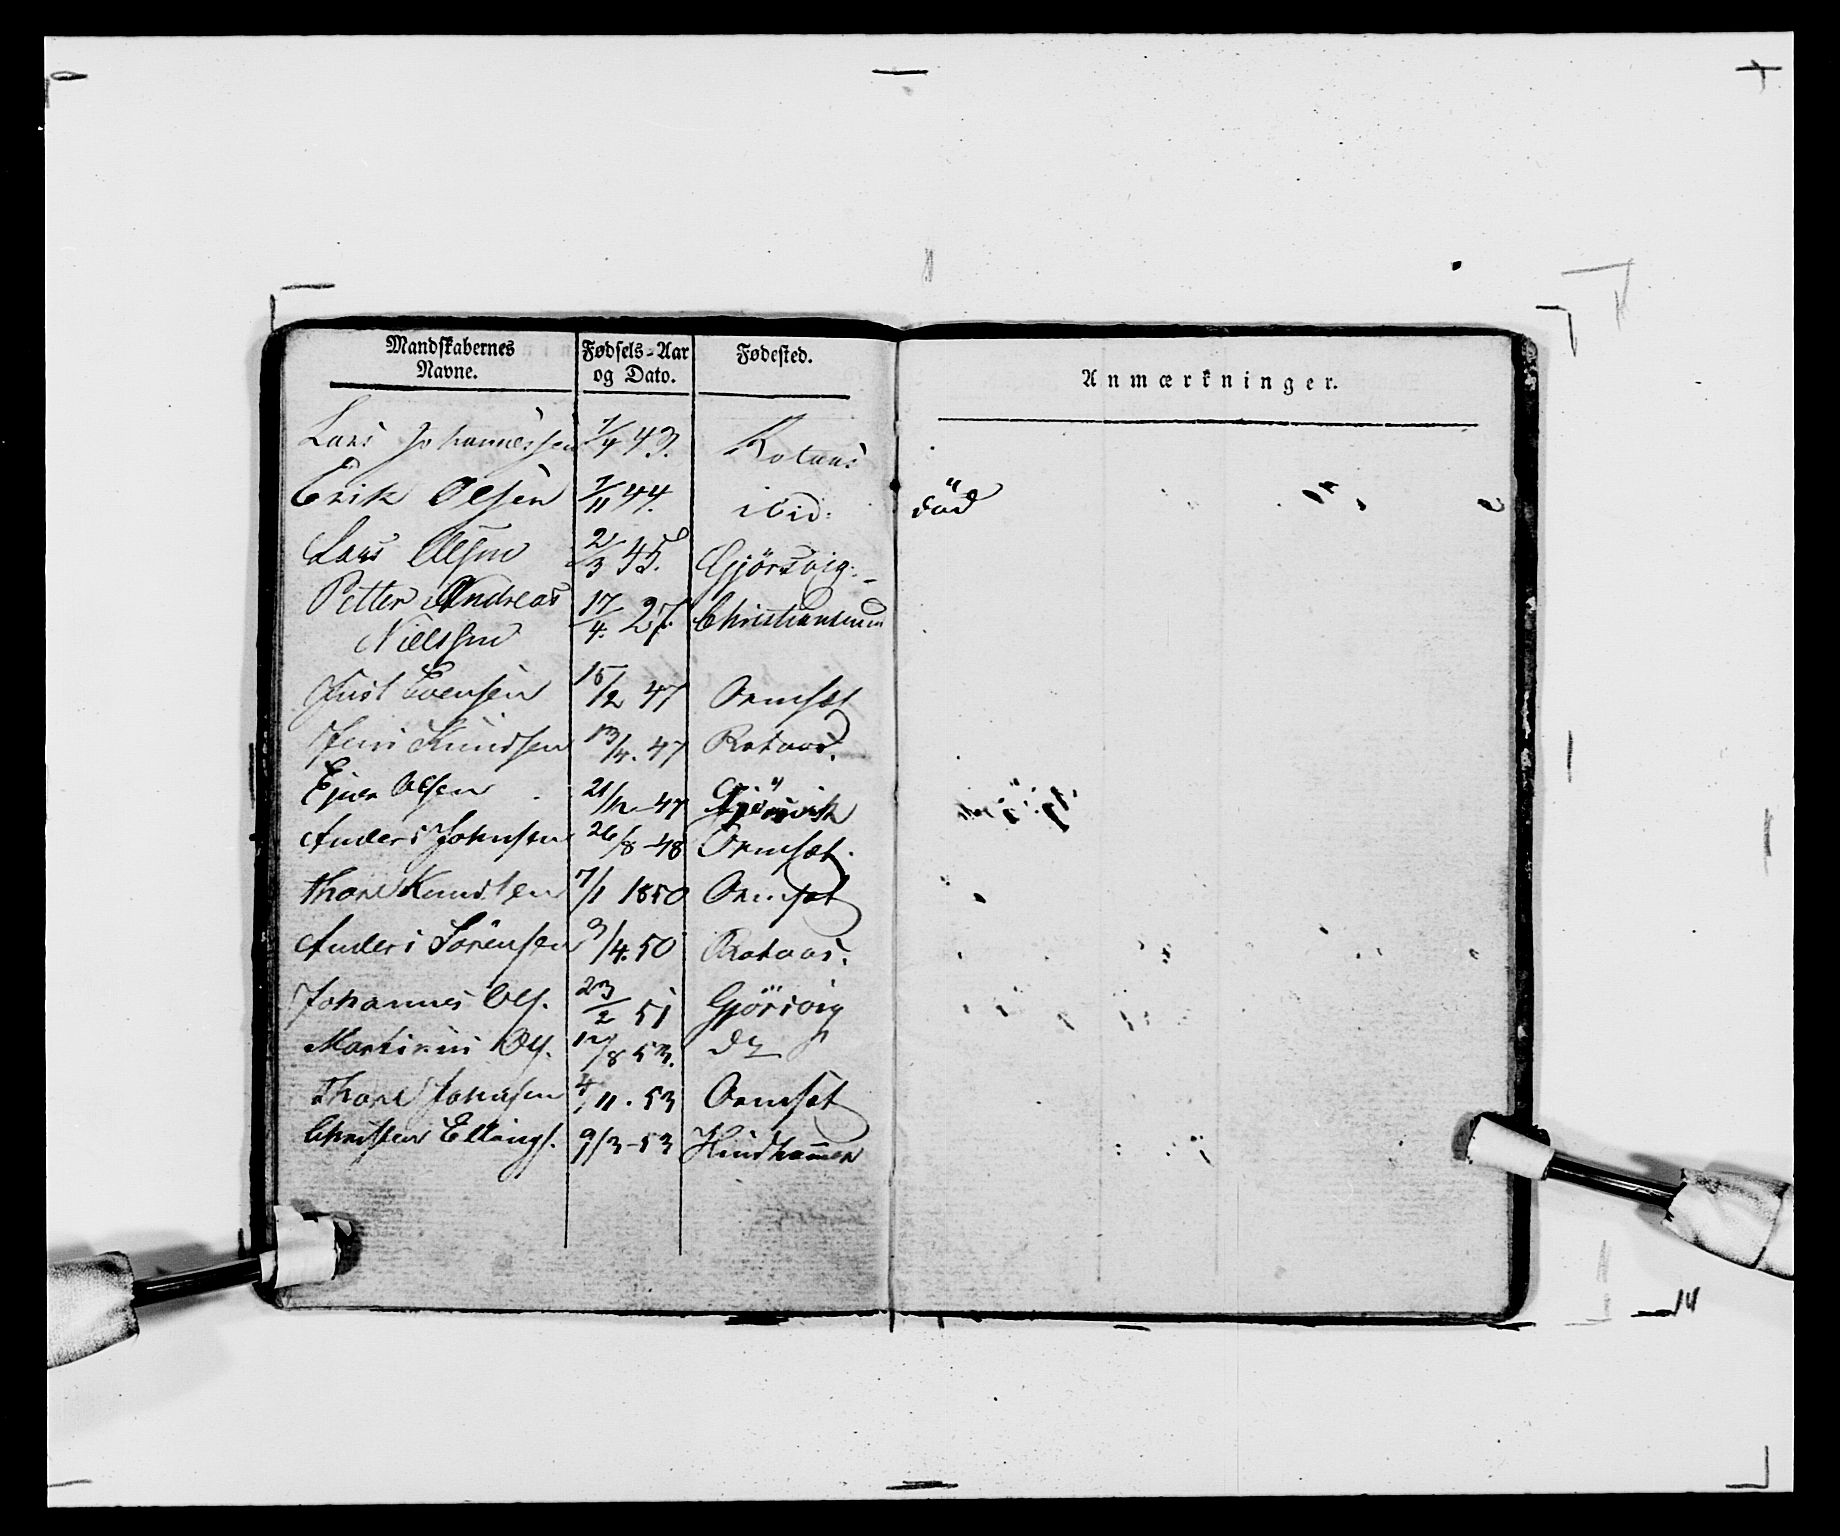 Mandskabernes Navne. Fødsels-Aar og Dato. Fødested. Anmærkninger.
Lars Johannessen 7/4 43. Rotaas
Erik Olsen 7/11 44. ibid: död
Lars Olsen 2/3 45. Gjörsvig.
Petter Andreas 17/4. 27. Christiansund
Nielssen
Knut Evensen 15/2 47 Ormset
Jens Knudsen 13/4. 47 Rotaas.
Ejner Olsen 21/12-47 Gjörsvik
Anders Johnsen 26/8-48 Ormset.
Thore Knudsen 7/1 1850 Ormset
Anders Sörensen 9/4.50 Rotaas.
Johannes Ols. 23/2 51 Gjörsvig
Martinus Ols. 12/8 53. do
Thore Johnsen 4/11. 53 Ormset
Christen Ellings. 9/3-53 Hindhammer
14